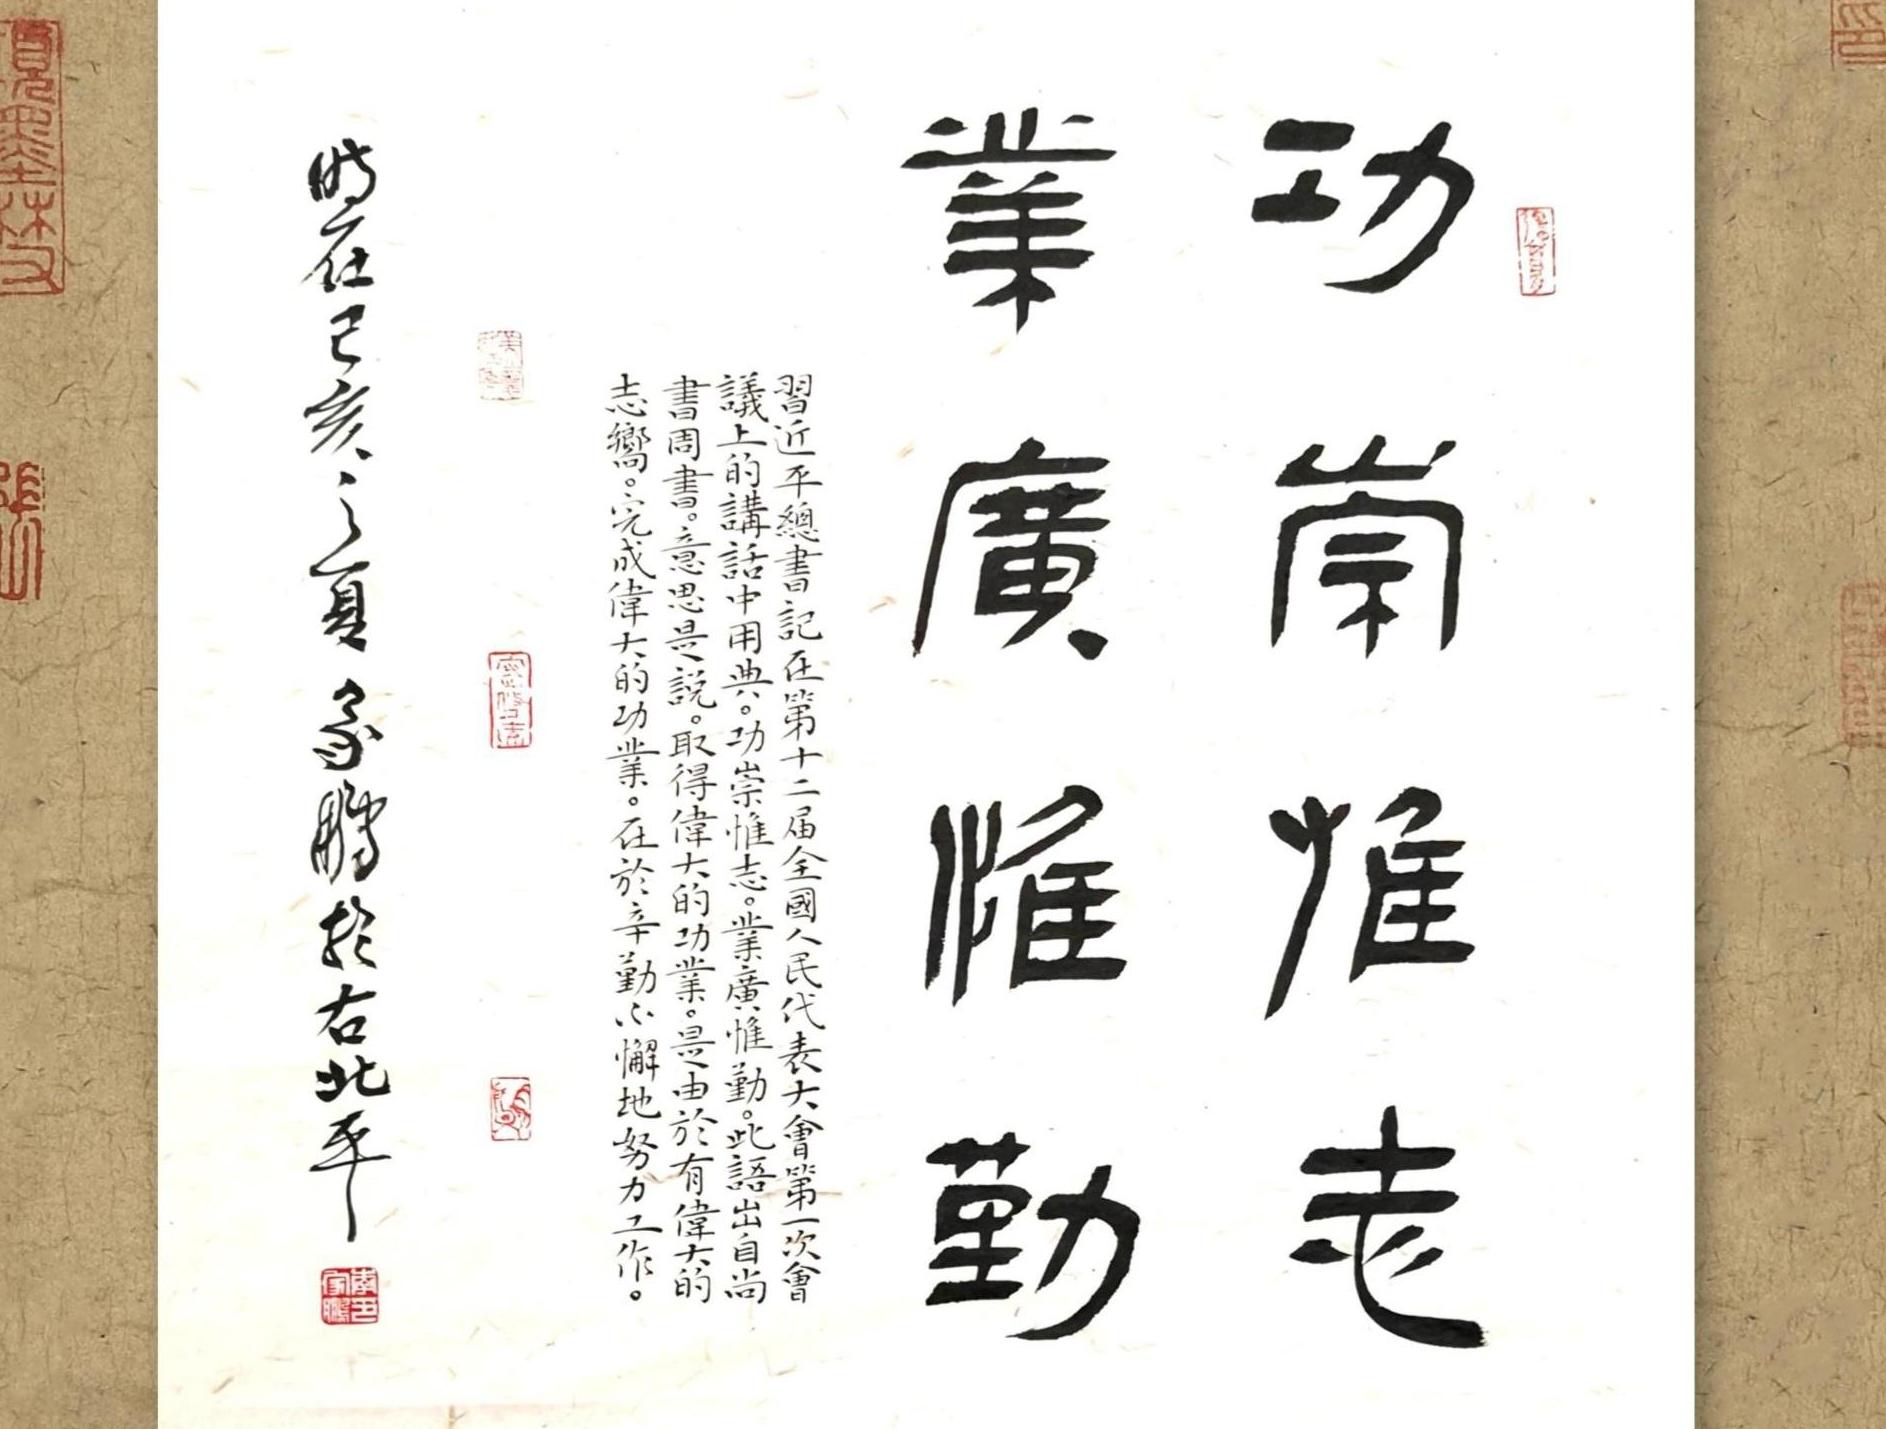 功崇惟志
業廣惟勤
習近平總書記在第十二届全國人民代表大會第一次會
議上的講話中用典。功崇惟志。業廣惟勤。此語出自尚
書周書。意思是説。取得偉大的功業。是由於有偉大的
志嚮。完成偉大的功業。在於辛勤不懈地努力工作。
時在己亥之夏家鵬於右北平